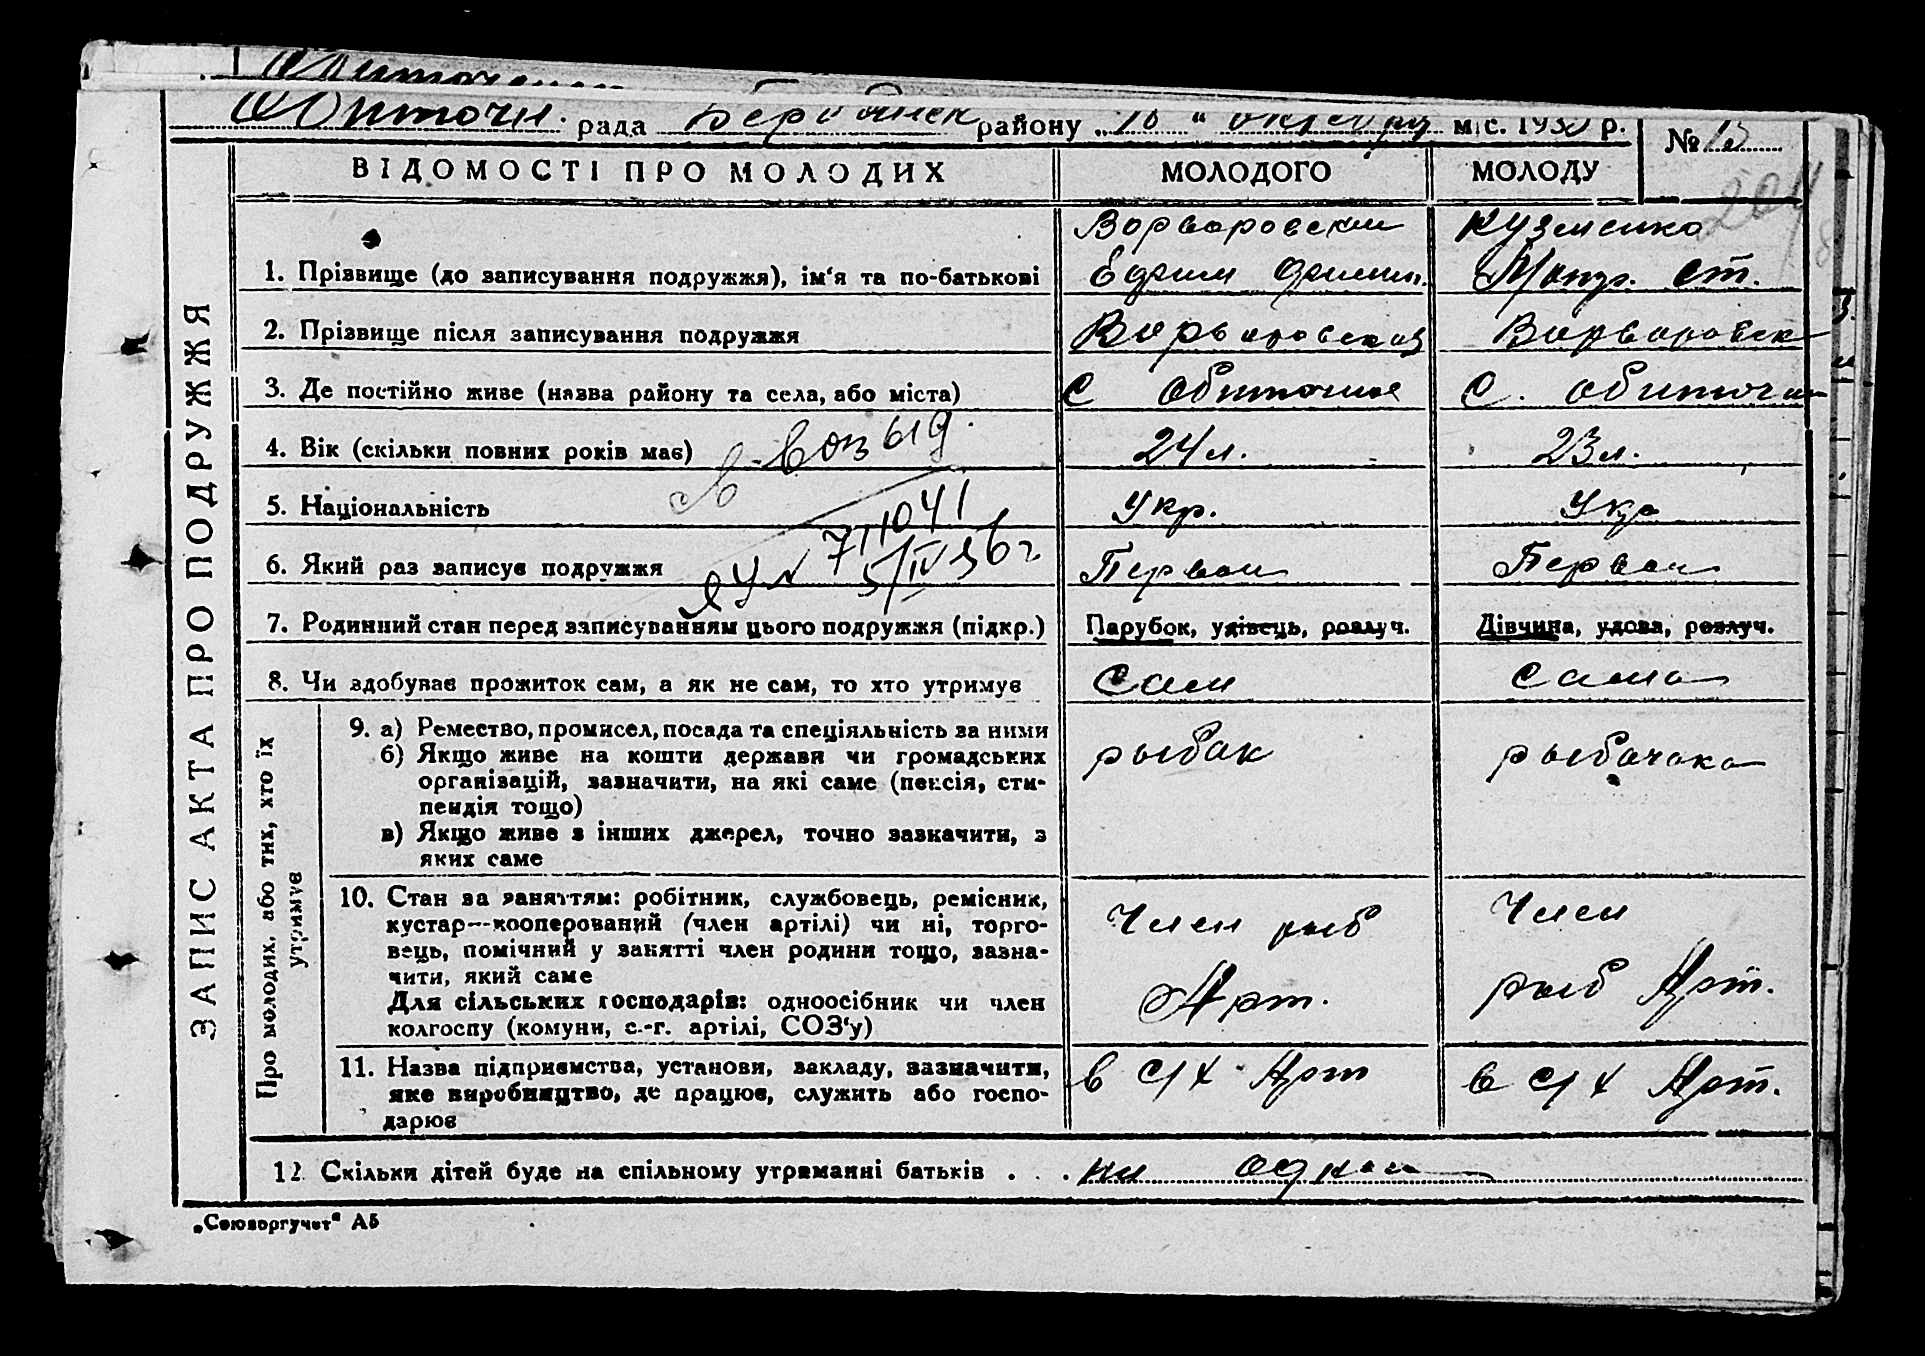 Обиточн. рада Бердянск району „16" октября міс. 193 р. № 13
204
ВІДОМОСТІ ПРО МОЛОДИХ МОЛОДОГО МОЛОДУ
ЗАПИС АКТА ПРО ПОДРУЖЖЯ
Ворваровский Кузменко
1. Прізвище (до записування подружжя), ім'я та по-батькові Ефрим Ст.
2. Прізвище після записування подружжя Ворваровский Ворваровск
3. Де постійно живе (назва району та села, або міста) С Обиточная С. Обиточная
4. Вік (скільки повних років має) 24 л. 23 л.
5. Національність Укр. Укр
711041
6. Який раз записує подружжя Первый Первый
ЯУ № 5/IV 36 г
7. Родинний стан перед записуванням цього подружжя (підкр.) Парубок, удівець, розлуч. Дівчина, удова, розлуч.
8. Чи здобуває прожиток сам, а як не сам, то хто утримує Сам Сама
Про молодих, або тих, хто їх утримує
9. а) Ремество, промисел, посада та спеціяльність за ними
б) Якщо живе на кошти держави чи громадських рыбак рыбачка
організацій, зазначити, на які саме (пенсія, сти-
пендія тощо)
в) Якщо живе з інших джерел, точно зазначити, з
яких саме
10. Стан за заняттям: робітник, службовець, ремісник,
кустар—кооперований (член артілі) чи ні, торго- Член рыб Член
вець, помічний у занятті член родини тощо, зазна-
чити, який саме Арт. рыб Арт.
Для сільських господарів: одноосібник чи член
колгоспу (комуни, с.-г. артілі, СОЗ'у)
11. Назва підприємства, установи, закладу, зазначити, в с/х Арт в с/х Арт.
яке виробництво, де працює, служить або госпо-
дарює
12. Скільки дітей буде на спільному утриманні батьків . . . ни одной
„Союзоргучет" А5